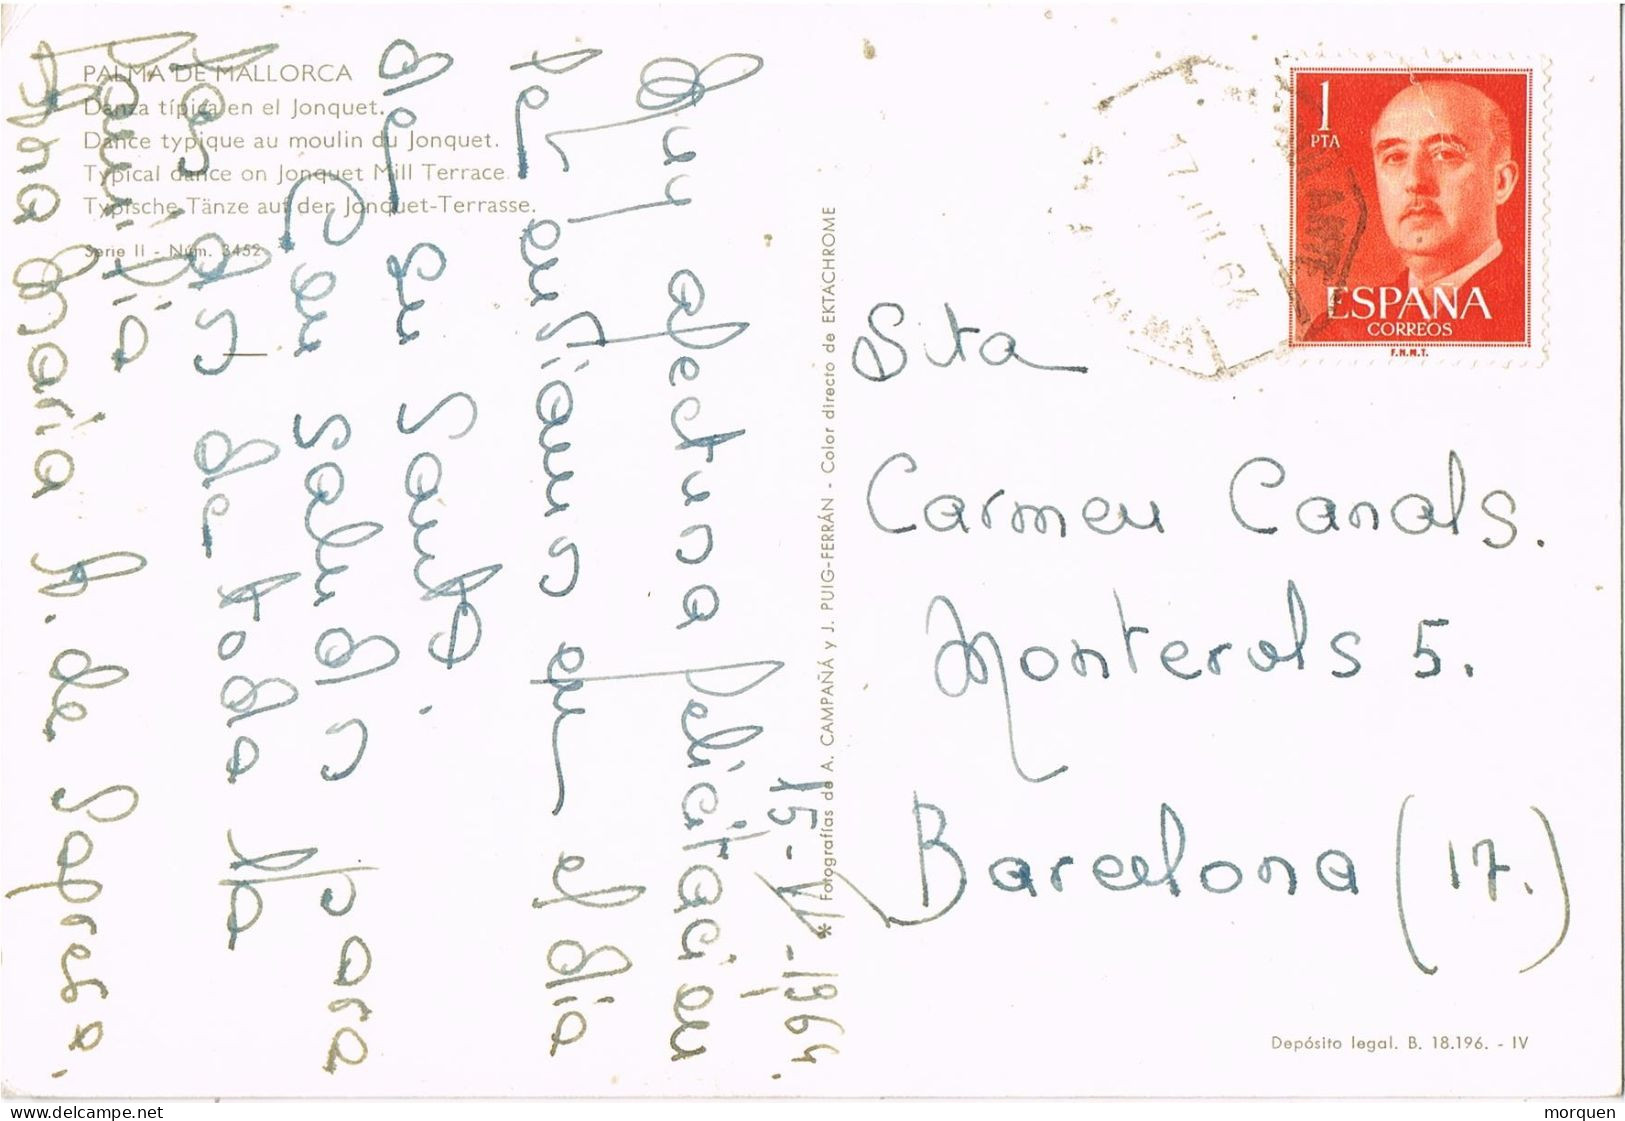 PALMA DE MALLORCA
Danza típica en el Jonquet.
Dance typique au moulin du Jonquet.
Typical dance on Jonquet Mill Terrace.
Typische Tänze auf der Jonquet-Terrasse.
Serie II - Núm. 3452
15-VII-1964.
Muy afectuosa felicitación
del en el día
de su Santo.
Con saludos para
los de toda la
familia
Ana María A. de Sapresa.
* Fotografías de A. CAMPAÑÁ y J. PUIG-FERRÁN - Color directo de EKTACHROME
1
PTA
ESPAÑA
CORREOS
F.N.M.T.
17 JUL. 64
PALMA
Sta
Carmen Canals.
Monterols 5.
Barcelona (17.)
Depósito legal. B. 18.196. - IV
morquen
www.delcampe.net